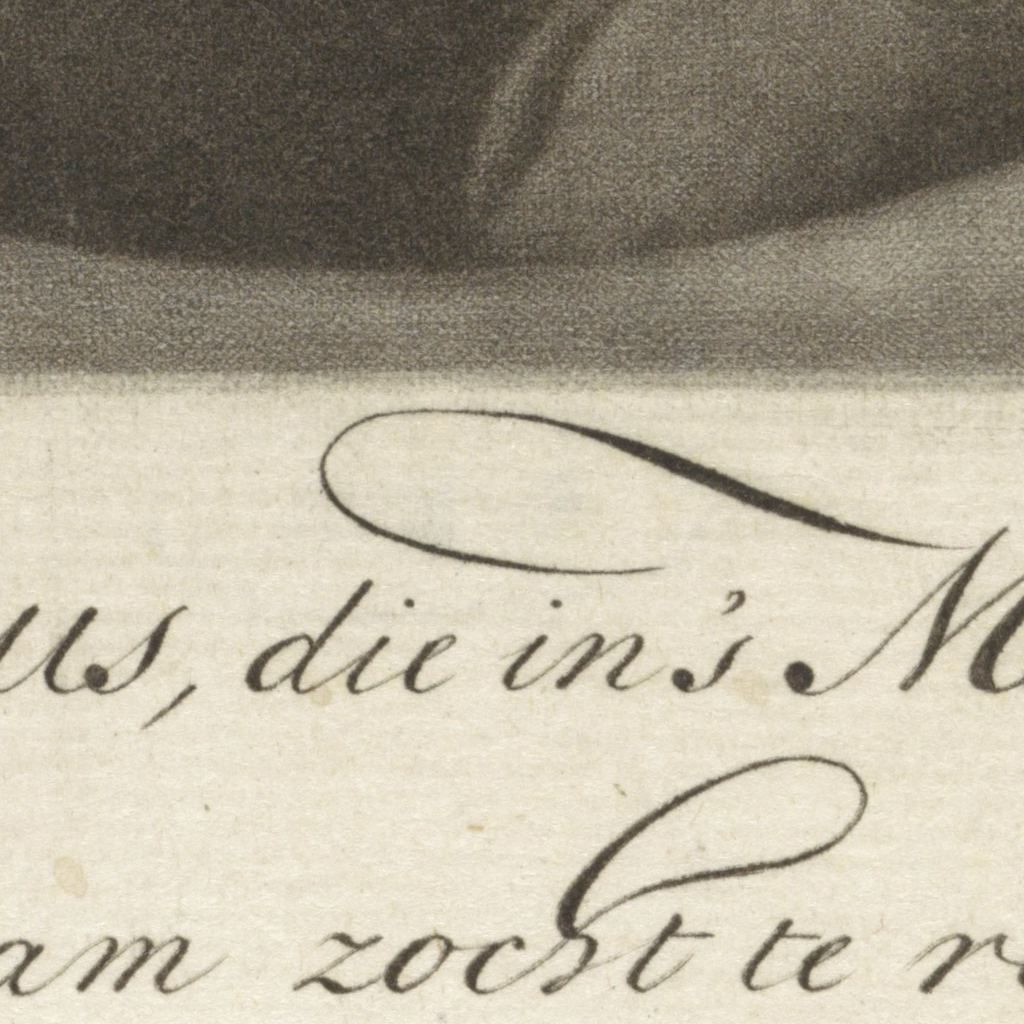 us, die in's M
am zocht te r